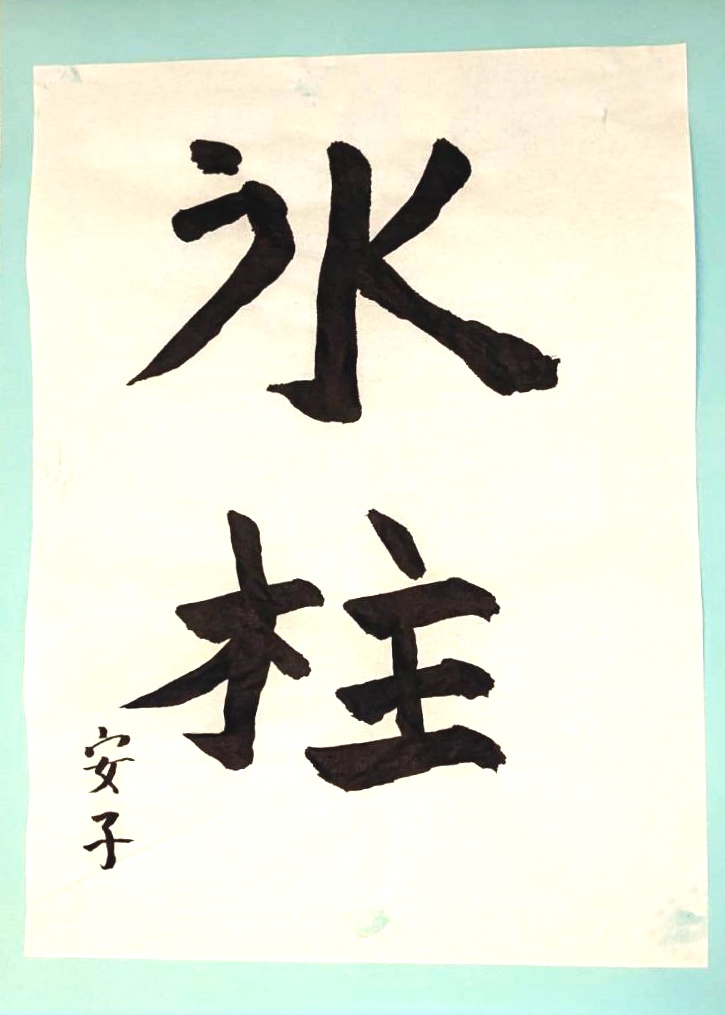 氷柱
安子